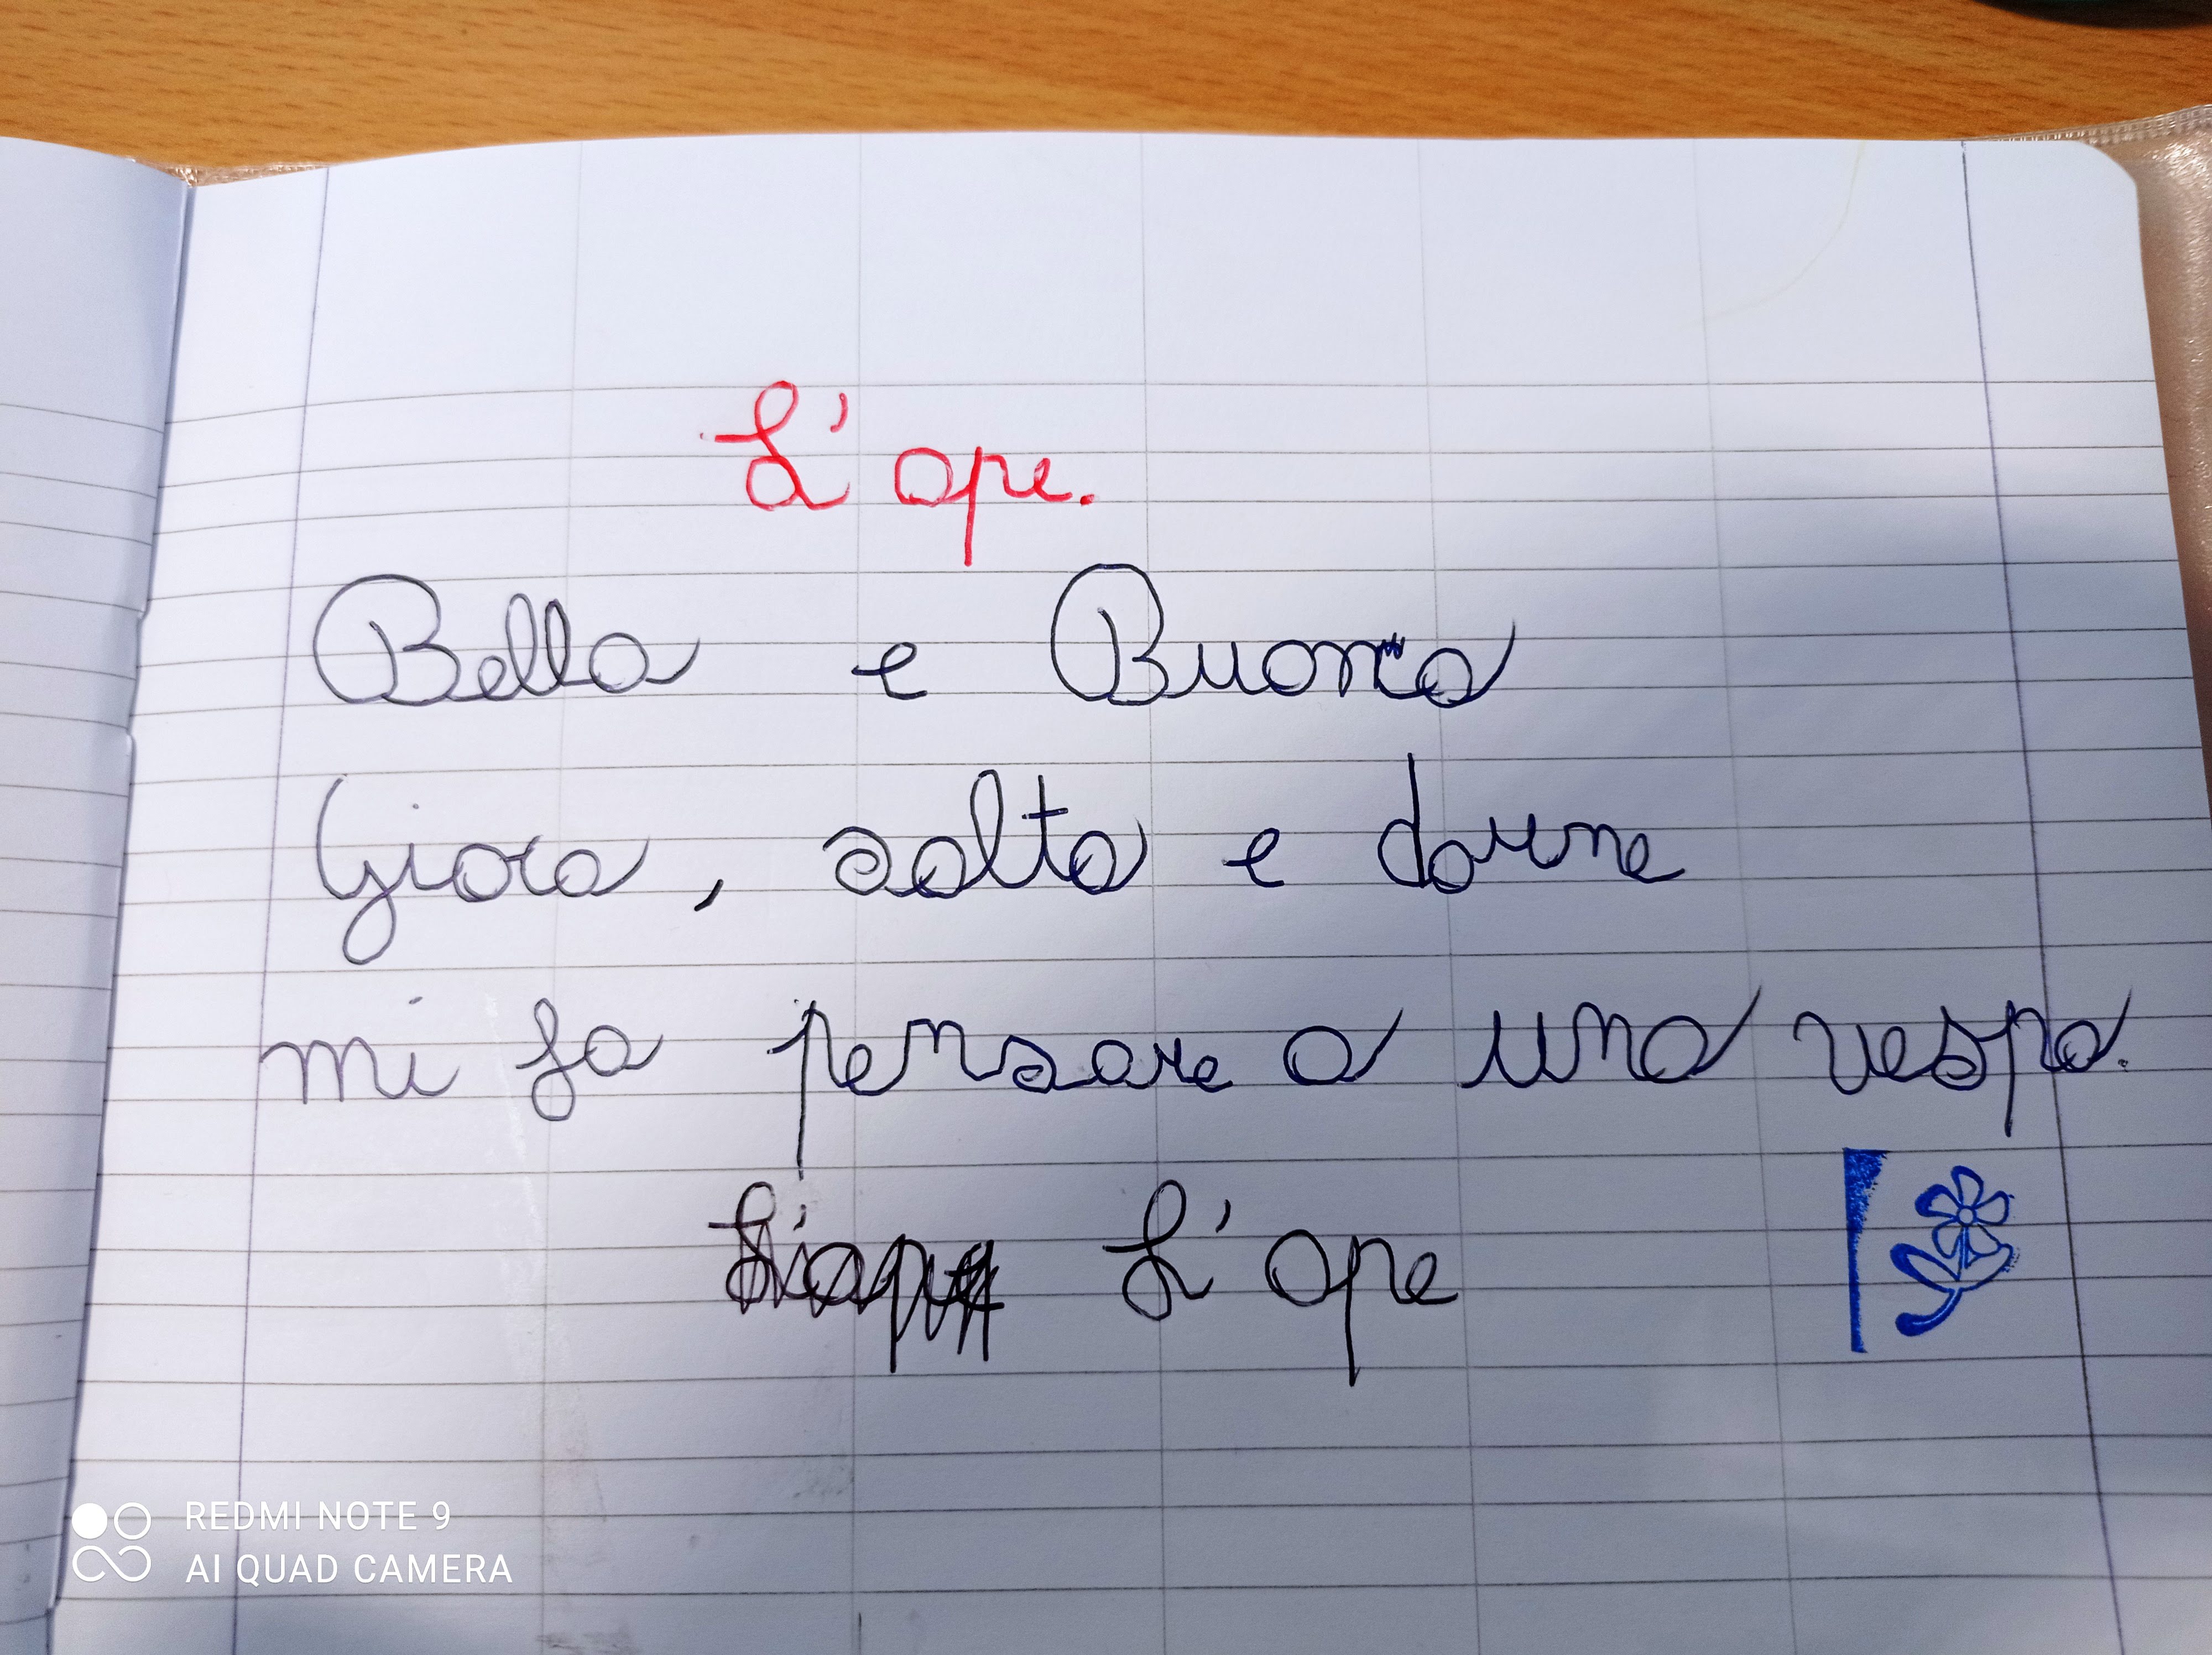 L'ape.
Bella e Buona
Gioca, salta e dorme
mi fa pensare a una vespa.
L'ape
REDMI NOTE 9
AI QUAD CAMERA